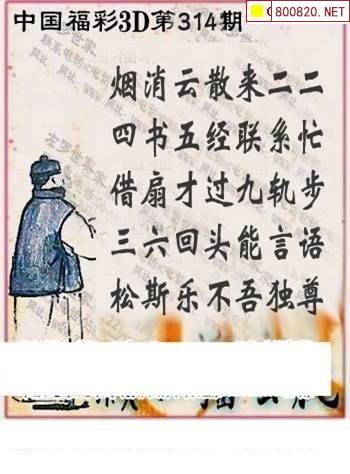 中国福彩3D第314期
800820.NET
烟消云散来二二
四书五经联系忙
借扇才过九轨步
三六回头能言语
松斯乐不吾独尊